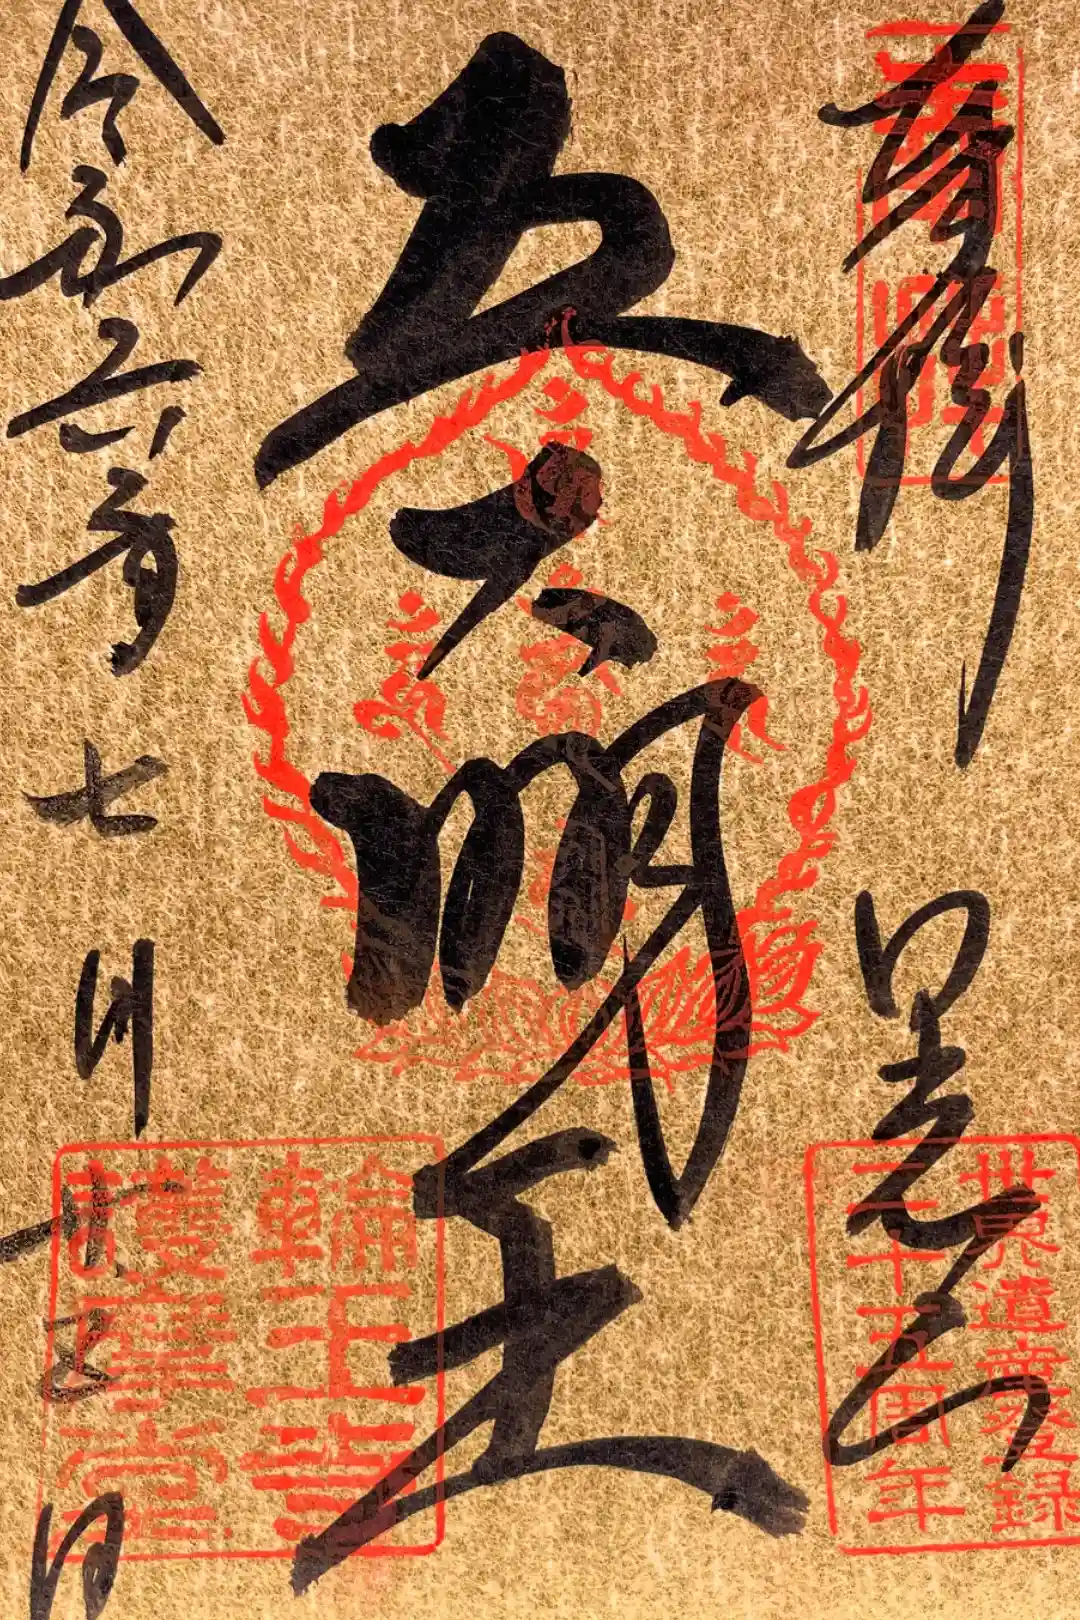 奉拝
日光山
五大明王
令和六年七月十五日
世界遺産登録
二十五周年
輪王寺
護摩堂